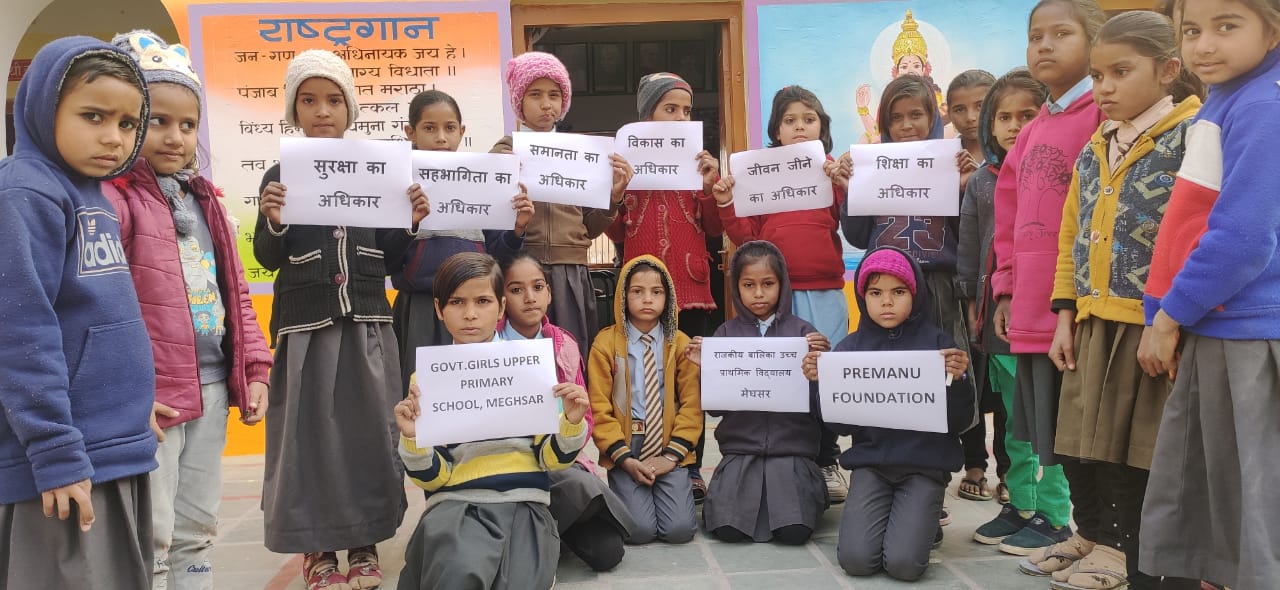 राष्ट्रगान
जन-गण अधिनायक जय हे ।
भाग्य विधाता ।।
पंजाब मराठा
विंध्य
तव
सुरक्षा का
अधिकार
सहभागिता का
अधिकार
समानता का
अधिकार
विकास का
अधिकार
जीवन जीने
का अधिकार
शिक्षा का
अधिकार
GOVT.GIRLS UPPER
PRIMARY
SCHOOL, MEGHSAR
राजकीय बालिका उच्च
प्राथमिक विद्यालय
मेघसर
PREMANU
FOUNDATION
adidas
23